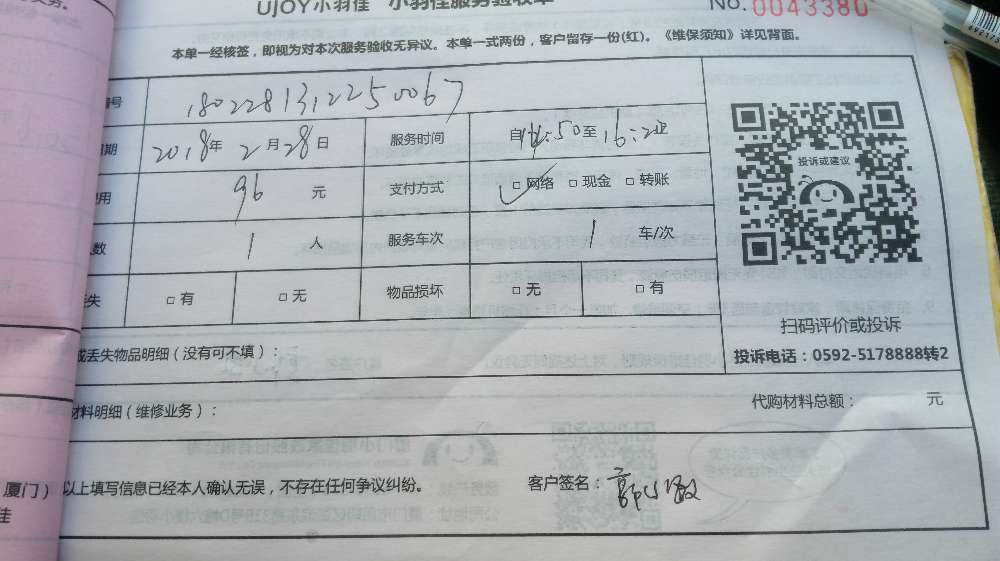 UJOY小羽佳 小羽佳服务验收单
No.0043380
本单一经核签，即视为对本次服务验收无异议。本单一式两份，客户留存一份(红)。《维保须知》详见背面。
号 180228131225 0067
期 2018年2月28日 服务时间 自 :50至16:
用 96 元 支付方式 □网络 □现金 □转账
数 1 人 服务车次 1 车/次
失 □有 □无 物品损坏 □无 □有
投诉或建议
扫码评价或投诉
投诉电话：0592-5178888转2
或丢失物品明细（没有可不填）：
材料明细（维修业务）：
代购材料总额： 元
厦门）
佳
以上填写信息已经本人确认无误，不存在任何争议纠纷。
客户签名：